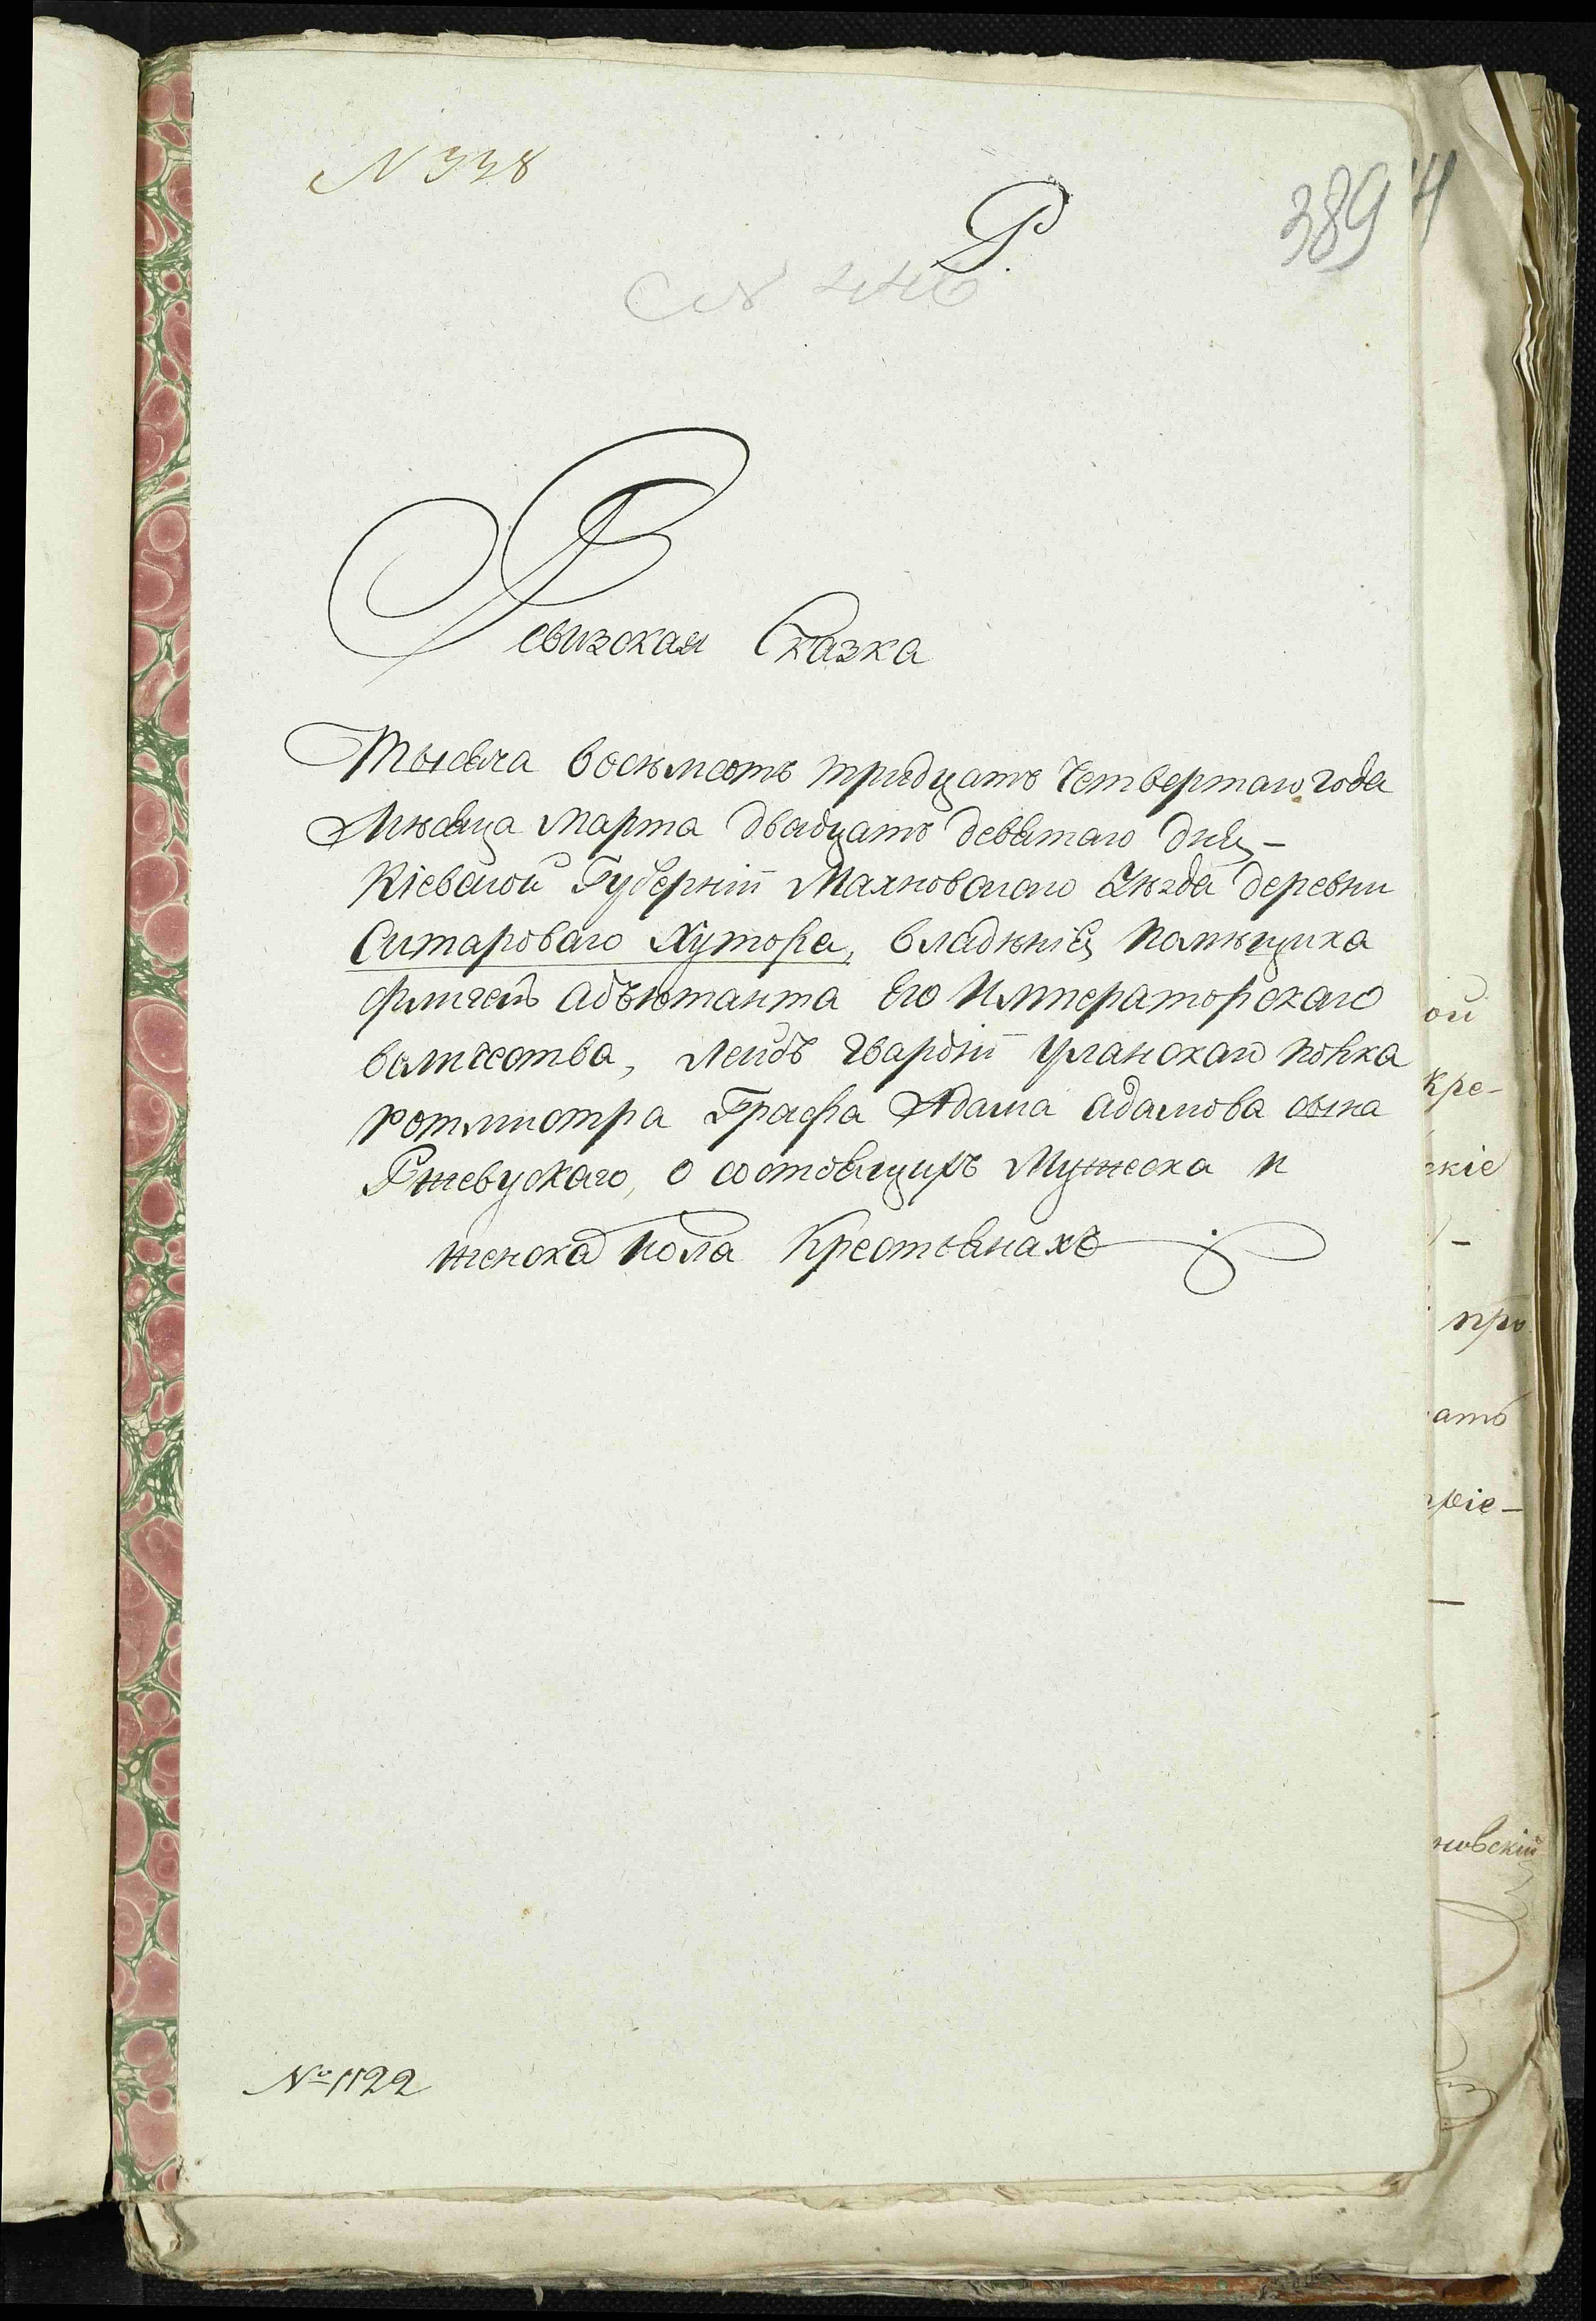 N 338
Р.
389
N 446
Ревизская Сказка
Тысяча восемсотъ тридцать Четвертаго года
Мѣсяца Марта двадцать девятаго дня,-
Кіевской Губерніи Махновскаго Уѣзда деревни
Ситароваго Хутора, владѣнія помѣщика
флигель адъютанта Его Императорскаго
величества, Лейбъ Гвардіи Уланскаго полка
ротмистра Графа Адама Адамова сына
Ржевускаго, о состоящихъ Мужеска и
женска пола Крестьянахъ
№ 1122
ой
кре-
кіе
про
ать
ріе-
новскій